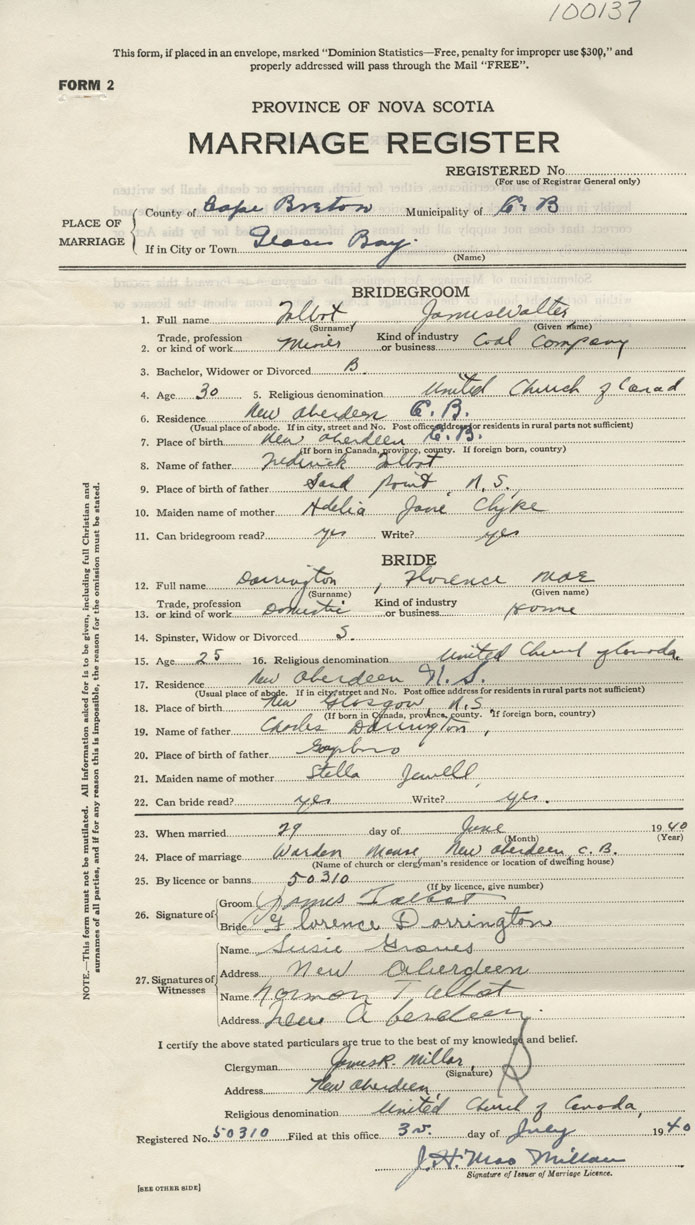 100137
This form, if placed in an envelope, marked "Dominion Statistics—Free, penalty for improper use $300," and
properly addressed will pass through the Mail "FREE".
FORM 2
PROVINCE OF NOVA SCOTIA
MARRIAGE REGISTER
REGISTERED No.
(For use of Registrar General only)
PLACE OF MARRIAGE
County of Cape Breton Municipality of C. B
If in City or Town Glace Bay.
(Name)
BRIDEGROOM
1. Full name Talbot, James Walter
(Surname) (Given name)
2. Trade, profession or kind of work Miner Kind of industry or business Coal Company
3. Bachelor, Widower or Divorced B.
4. Age 30 5. Religious denomination United Church of Canad
6. Residence New Aberdeen C. B.
(Usual place of abode. If in city, street and No. Post office address for residents in rural parts not sufficient)
7. Place of birth New Aberdeen C. B.
(If born in Canada, province, county. If foreign born, country)
8. Name of father Frederick Talbot
9. Place of birth of father Sand Point, N.S.
10. Maiden name of mother Adelia Jane Clyke
11. Can bridegroom read? yes Write? yes
BRIDE
12. Full name Dorrington, Florence Mae
(Surname) (Given name)
13. Trade, profession or kind of work Domestic Kind of industry or business Home
14. Spinster, Widow or Divorced S.
15. Age 25 16. Religious denomination United Church of Canada.
17. Residence New Aberdeen N. S.
(Usual place of abode. If in city/street and No. Post office address for residents in rural parts not sufficient)
18. Place of birth New Glasgow, N.S.
(If born in Canada, province, county. If foreign born, country)
19. Name of father Charles Dorrington,
20. Place of birth of father
21. Maiden name of mother Stella Jewell
22. Can bride read? yes Write? yes.
23. When married 29 day of June 1940
(Month) (Year)
24. Place of marriage Warden Manse, New Aberdeen, C. B.
(Name of church or clergyman's residence or location of dwelling house)
25. By licence or banns 50310
(If by licence, give number)
26. Signature of
Groom James Talbot
Bride Florence Dorrington
27. Signatures of Witnesses
Name Susie Groves
Address New Aberdeen
Name Norman Talbot
Address New Aberdeen.
I certify the above stated particulars are true to the best of my knowledge and belief.
Clergyman James R. Millar,
(Signature)
Address New Aberdeen,
Religious denomination United Church of Canada,
Registered No. 50310 Filed at this office day of July 1940
J. H. Mac Millan
Signature of Issuer of Marriage Licence.
[SEE OTHER SIDE]
NOTE.—This form must not be mutilated. All information asked for is to be given, including full Christian and
surnames of all parties, and if for any reason this is impossible, the reason for the omission must be stated.